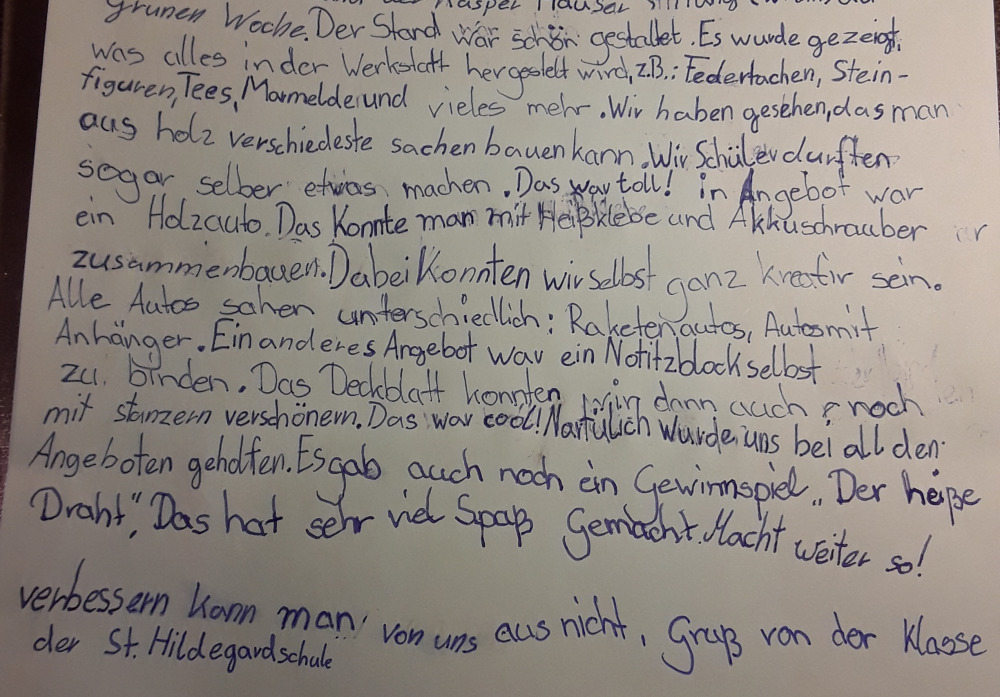 der Kasper Hauser Stiftung
Grünen Woche. Der Stand war schön gestaltet. Es wurde gezeigt,
was alles in der Werkstatt hergestelt wird, z.B.: Federtachen, Stein-
figuren, Tees, Marmelde und vieles mehr. Wir haben gesehen, das man
aus holz verschiedeste sachen bauen kann. Wir Schüler durften
sogar selber etwas machen. Das war toll! in Angebot war
ein Holzauto. Das Konnte man mit Heißklebe und Akkuschrauber
zusammenbauen. Dabei Konnten wir selbst ganz kreativ sein.
Alle Autos sahen unterschiedlich: Raketenautos, Autos mit
Anhänger. Ein anderes Angebot war ein Notitzblock selbst
zu binden. Das Deckblatt konnten wir dann auch noch
mit stanzern verschönern. Das war cool! Nartülich wurde uns bei all den
Angeboten geholfen. Es gab auch noch ein Gewinnspiel „Der heiße
Draht“. Das hat sehr viel Spaß Gemacht. Macht weiter so!
verbessern kann man von uns aus nicht, Gruß von der Klasse
der St. Hildegardschule